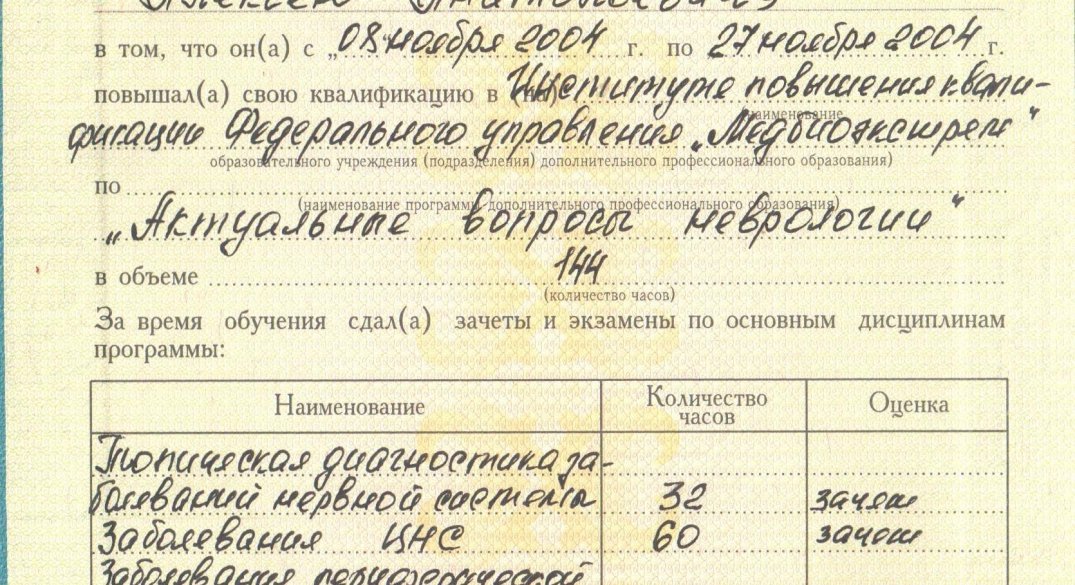 Алексею Анатольевичу
в том, что он(а) с „08“ ноября 2004 г. по 27 ноября 2004 г.
повышал(а) свою квалификацию в (на) Институте повышения квали-
(наименование
фикации Федерального управления „Медбиоэкстрем“
образовательного учреждения (подразделения) дополнительного профессионального образования)
по
(наименование программы дополнительного профессионального образования)
„Актуальные вопросы неврологии“
в объеме 144
(количество часов)
За время обучения сдал(а) зачеты и экзамены по основным дисциплинам
программы:
Наименование Количество часов Оценка
Топическая диагностика за-
болеваний нервной системы 32 зачет
Заболевания ЦНС 60 зачет
Заболевания периферической